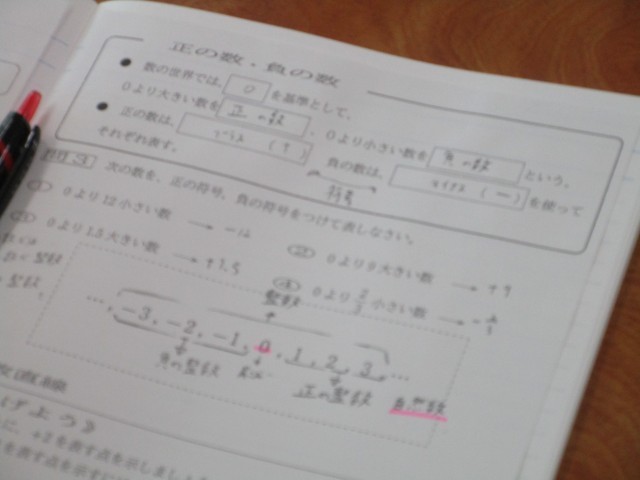 正の数・負の数
● 数の世界では、 0 を基準として、
0より大きい数を 正の数 、0より小さい数を 負の数 という。
● 正の数は、 プラス (+) 負の数は、 マイナス (−) を使って
それぞれ表す。
符号
例3 次の数を、正の符号、負の符号をつけて表しなさい。
(1) 0より12小さい数 → −12
(2) 0より9大きい数 → +9
(3) 0より1.5大きい数 → +1.5
(4) 0より 小さい数 →
整数
…, −3, −2, −1, 0, 1, 2, 3, …
負の整数 正の整数 自然数
直線
げよう
に、+2を表す点を示しましょ
を表す点を示すに